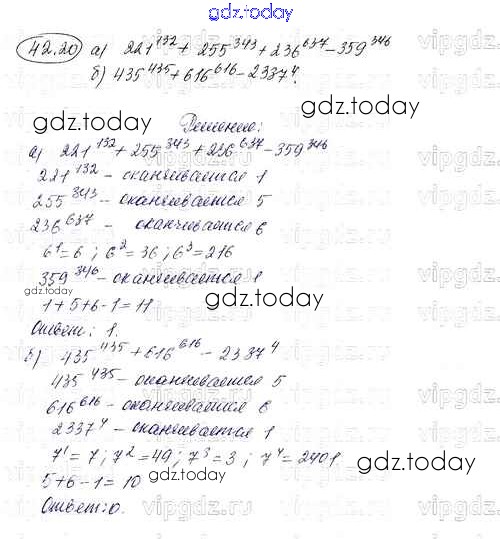 gdz.today
42.20 а) 221^132 + 255^343 + 236^637 - 359^346
б) 435^435 + 616^616 - 2337^4.
gdz.today
Решение:
а) 221^132 + 255^343 + 236^637 - 359^346
221^132 - оканчивается 1
255^343 - оканчивается 5
236^637 - оканчивается 6
6^1 = 6 ; 6^2 = 36 ; 6^3 = 216
359^346 - оканчивается 1
gdz.today
1 + 5 + 6 - 1 = 11
gdz.today
Ответ: 1.
б) 435^435 + 616^616 - 2337^4
435^435 - оканчивается 5
616^616 - оканчивается 6
2337^4 - оканчивается 1
7^1 = 7 ; 7^2 = 49 ; 7^3 = 3 ; 7^4 = 2401
gdz.today
5 + 6 - 1 = 10
gdz.today
Ответ: 0.
gdz.today